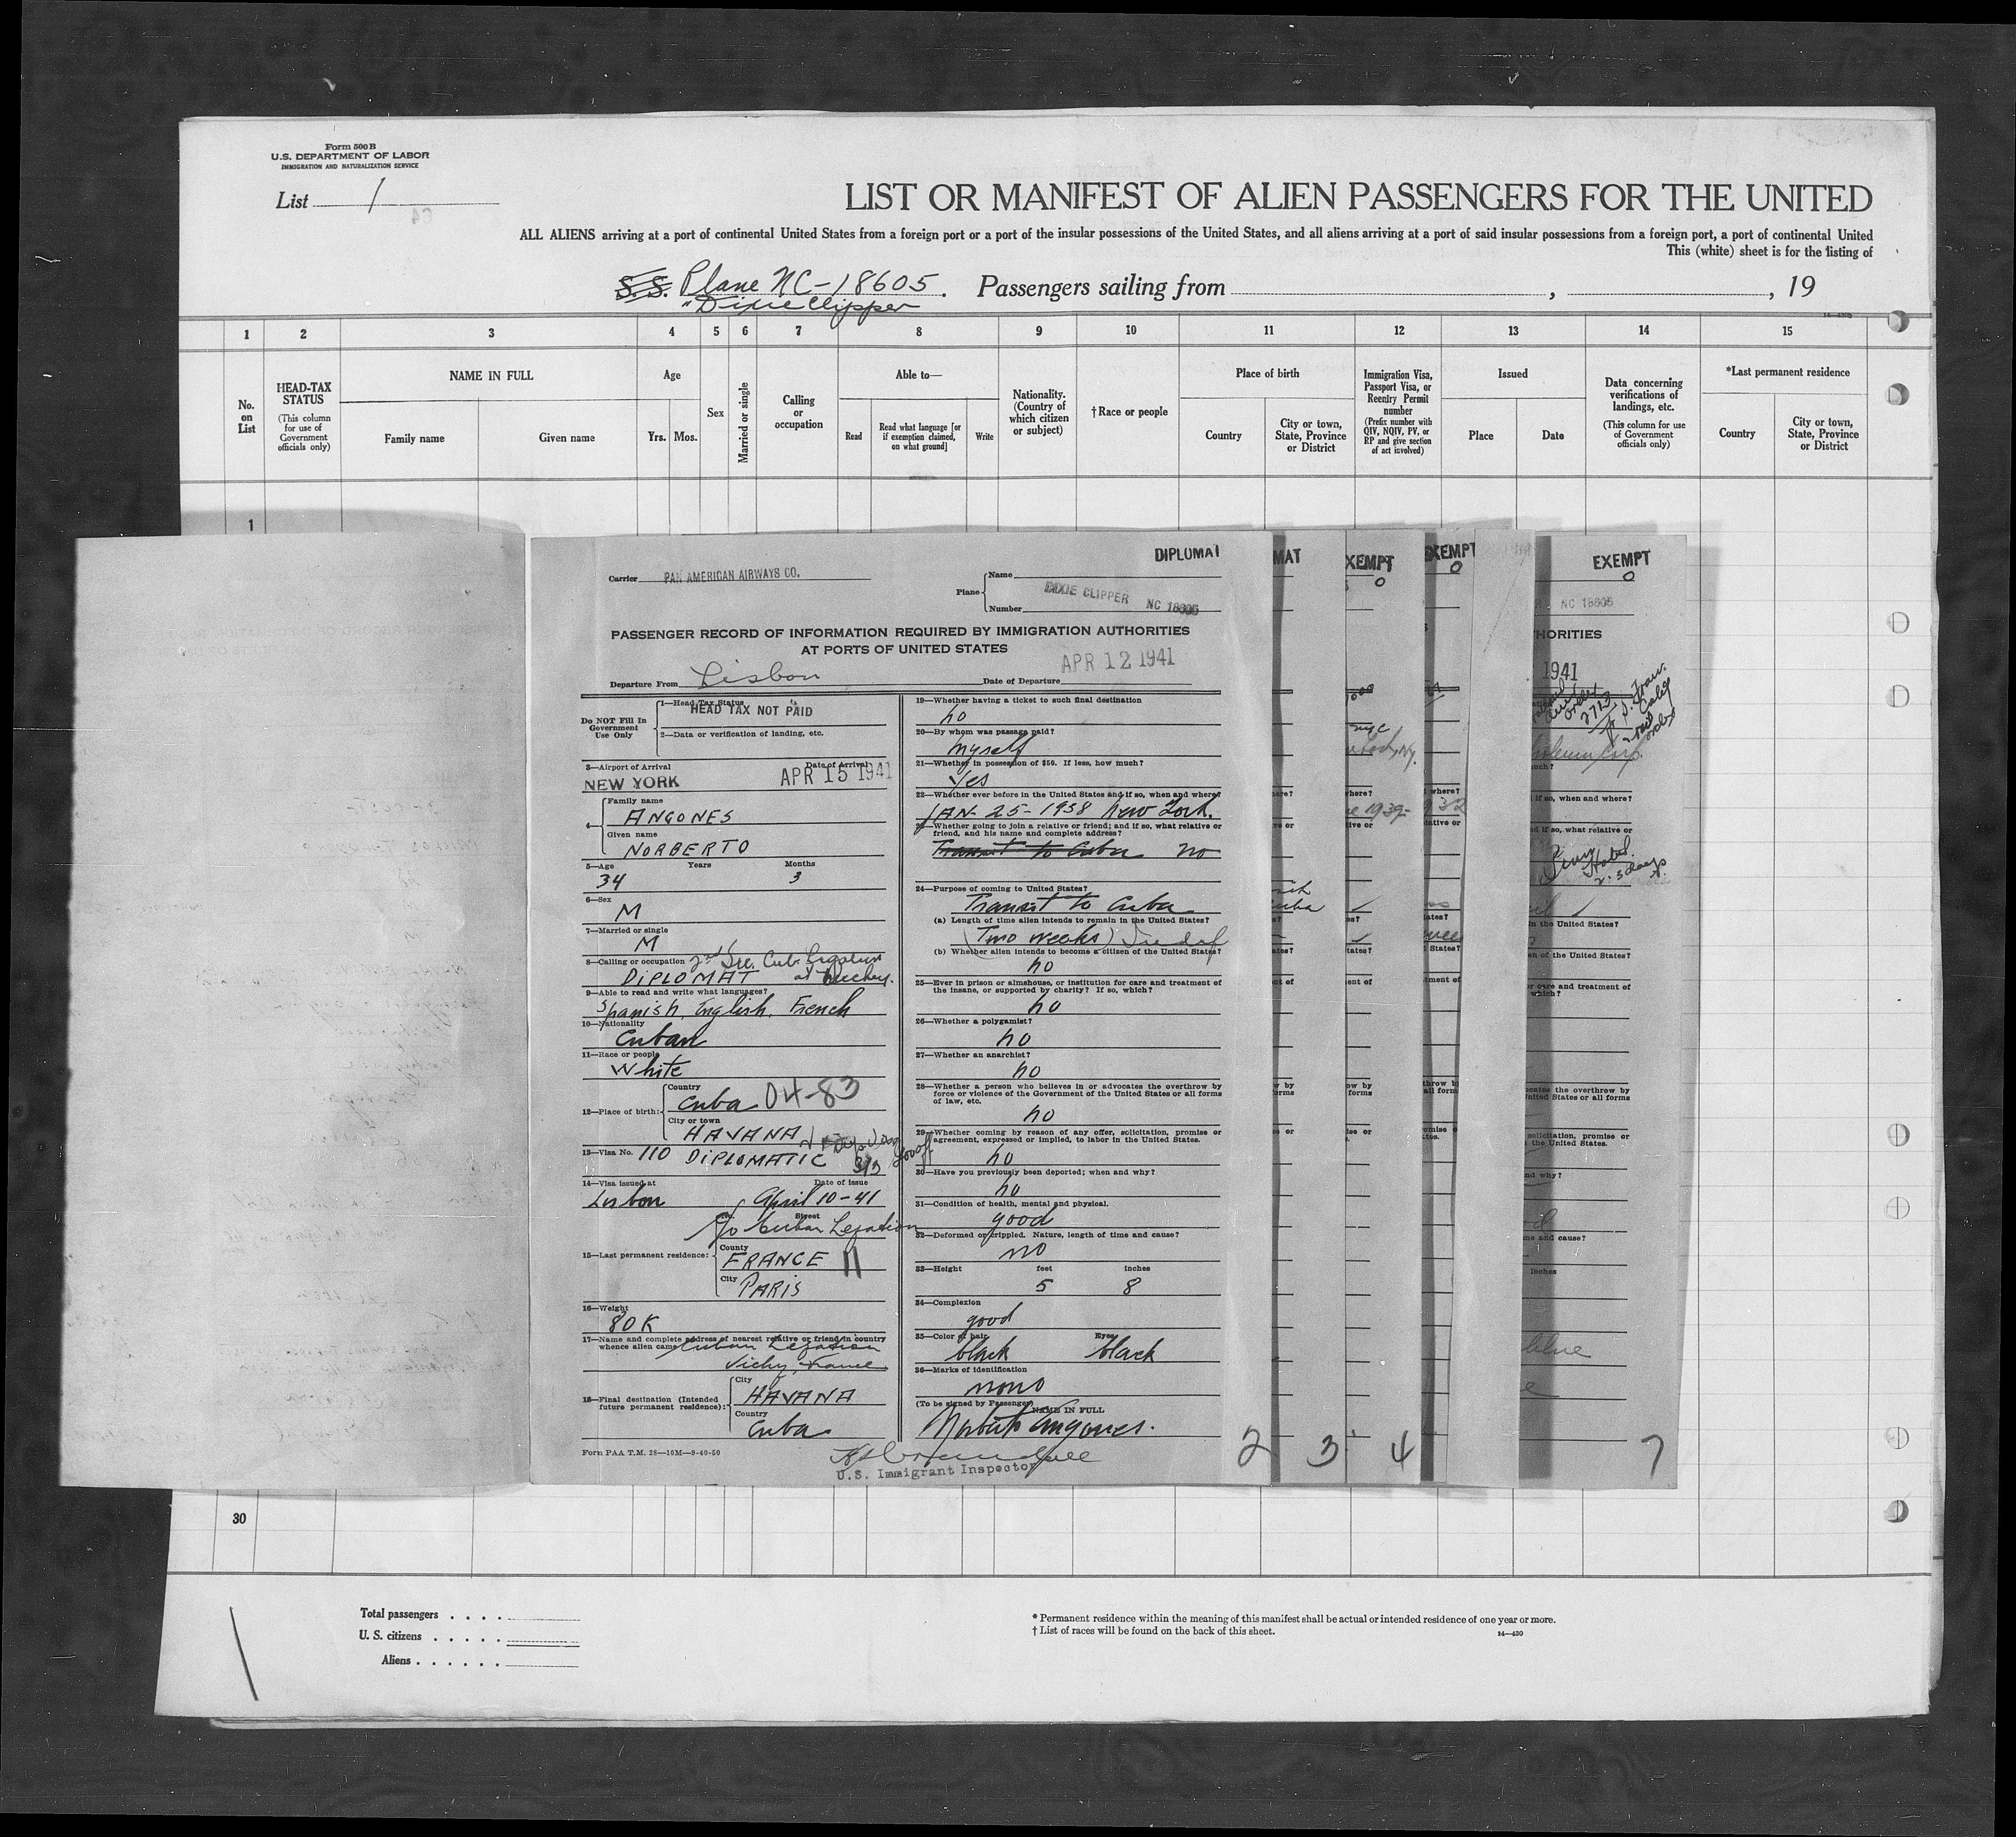 Form 500 B
U.S. DEPARTMENT OF LABOR
IMMIGRATION AND NATURALIZATION SERVICE
List 1
LIST OR MANIFEST OF ALIEN PASSENGERS FOR THE UNITED
ALL ALIENS arriving at a port of continental United States from a foreign port or a port of the insular possessions of the United States, and all aliens arriving at a port of said insular possessions from a foreign port, a port of continental United
This (white) sheet is for the listing of
S.S. Plane NC-18605. Passengers sailing from , , 19
"Dixie Clipper
1 2 3 4 5 6 7 8 9 10 11 12 13 14 15
No. on List
HEAD-TAX STATUS
(This column for use of Government officials only)
NAME IN FULL
Family name
Given name
Age
Yrs. Mos.
Sex
Married or single
Calling or occupation
Able to—
Read
Read what language [or if exemption claimed, on what ground]
Write
Nationality. (Country of which citizen or subject)
†Race or people
Place of birth
Country
City or town, State, Province or District
Immigration Visa, Passport Visa, or Reentry Permit number
(Prefix number with QIV, NQIV, PV, or RP and give section of act involved)
Issued
Place
Date
Data concerning verifications of landings, etc.
(This column for use of Government officials only)
*Last permanent residence
Country
City or town, State, Province or District
1
DIPLOMAT
Carrier PAN AMERICAN AIRWAYS CO.
Plane
Name
DIXIE CLIPPER NC 18605
Number
PASSENGER RECORD OF INFORMATION REQUIRED BY IMMIGRATION AUTHORITIES
AT PORTS OF UNITED STATES
APR 12 1941
Departure From Lisbon Date of Departure
Do NOT Fill In
Government
Use Only
1—Head Tax Status
HEAD TAX NOT PAID
2—Data or verification of landing, etc.
3—Airport of Arrival Date of Arrival
NEW YORK APR 15 1941
4—
Family name
ANGONES
Given name
NORBERTO
5—Age Years Months
34 3
6—Sex
M
7—Married or single
M
8—Calling or occupation 2nd Sec. Cub. Legation
DIPLOMAT at
9—Able to read and write what languages?
Spanish, English, French
10—Nationality
Cuban
11—Race or people
White
12—Place of birth:
Country
Cuba 04-83
City or town
HAVANA
13—Visa No. 110 DIPLOMATIC
14—Visa issued at Date of issue
Lisbon April 10-41
Street
c/o Cuban Legation
15—Last permanent residence:
County
FRANCE 11
City
PARIS
16—Weight
80 K
17—Name and complete address of nearest relative or friend in country
whence alien came Cuban Legation
Vichy, France
18—Final destination (Intended
future permanent residence):
City
HAVANA
Country
Cuba
Form PAA T.M. 28—10M—9-40-50
19—Whether having a ticket to such final destination
no
20—By whom was passage paid?
myself
21—Whether in possession of $50. If less, how much?
Yes
22—Whether ever before in the United States and if so, when and where?
JAN- 25- 1938 New York.
23—Whether going to join a relative or friend; and if so, what relative or
friend, and his name and complete address?
Transit to Cuba no
24—Purpose of coming to United States?
Transit to Cuba
(a) Length of time alien intends to remain in the United States?
(Two weeks)
(b) Whether alien intends to become a citizen of the United States?
no
25—Ever in prison or almshouse, or institution for care and treatment of
the insane, or supported by charity? If so, which?
no
26—Whether a polygamist?
no
27—Whether an anarchist?
no
28—Whether a person who believes in or advocates the overthrow by
force or violence of the Government of the United States or all forms
of law, etc.
no
29—Whether coming by reason of any offer, solicitation, promise or
agreement, expressed or implied, to labor in the United States.
no
30—Have you previously been deported; when and why?
no
31—Condition of health, mental and physical.
good
32—Deformed or crippled. Nature, length of time and cause?
no
33—Height feet inches
5 8
34—Complexion
good
35—Color of hair Eyes
black black
36—Marks of identification
mono
(To be signed by Passenger) NAME IN FULL
Norberto Angones.
U.S. Immigrant Inspector
2 3 4 7
EXEMPT
0
NC 18605
HORITIES
1941
30
Total passengers
U. S. citizens
Aliens
* Permanent residence within the meaning of this manifest shall be actual or intended residence of one year or more.
† List of races will be found on the back of this sheet.
14—430